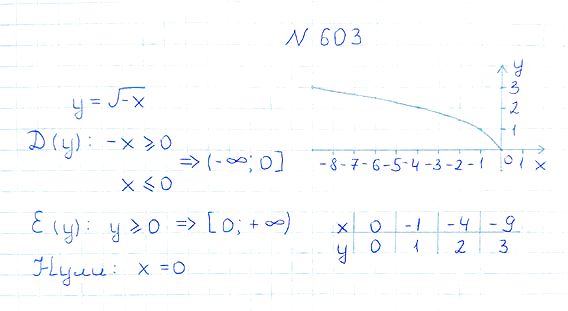 N 603
y = √-x
D(y): -x ⩾ 0
x ⩽ 0
=> (-∞; 0]
E(y): y ⩾ 0 => [0; +∞)
Нули: x = 0
y
3
2
1
-8 -7 -6 -5 -4 -3 -2 -1 0 1 x
x 0 -1 -4 -9
y 0 1 2 3